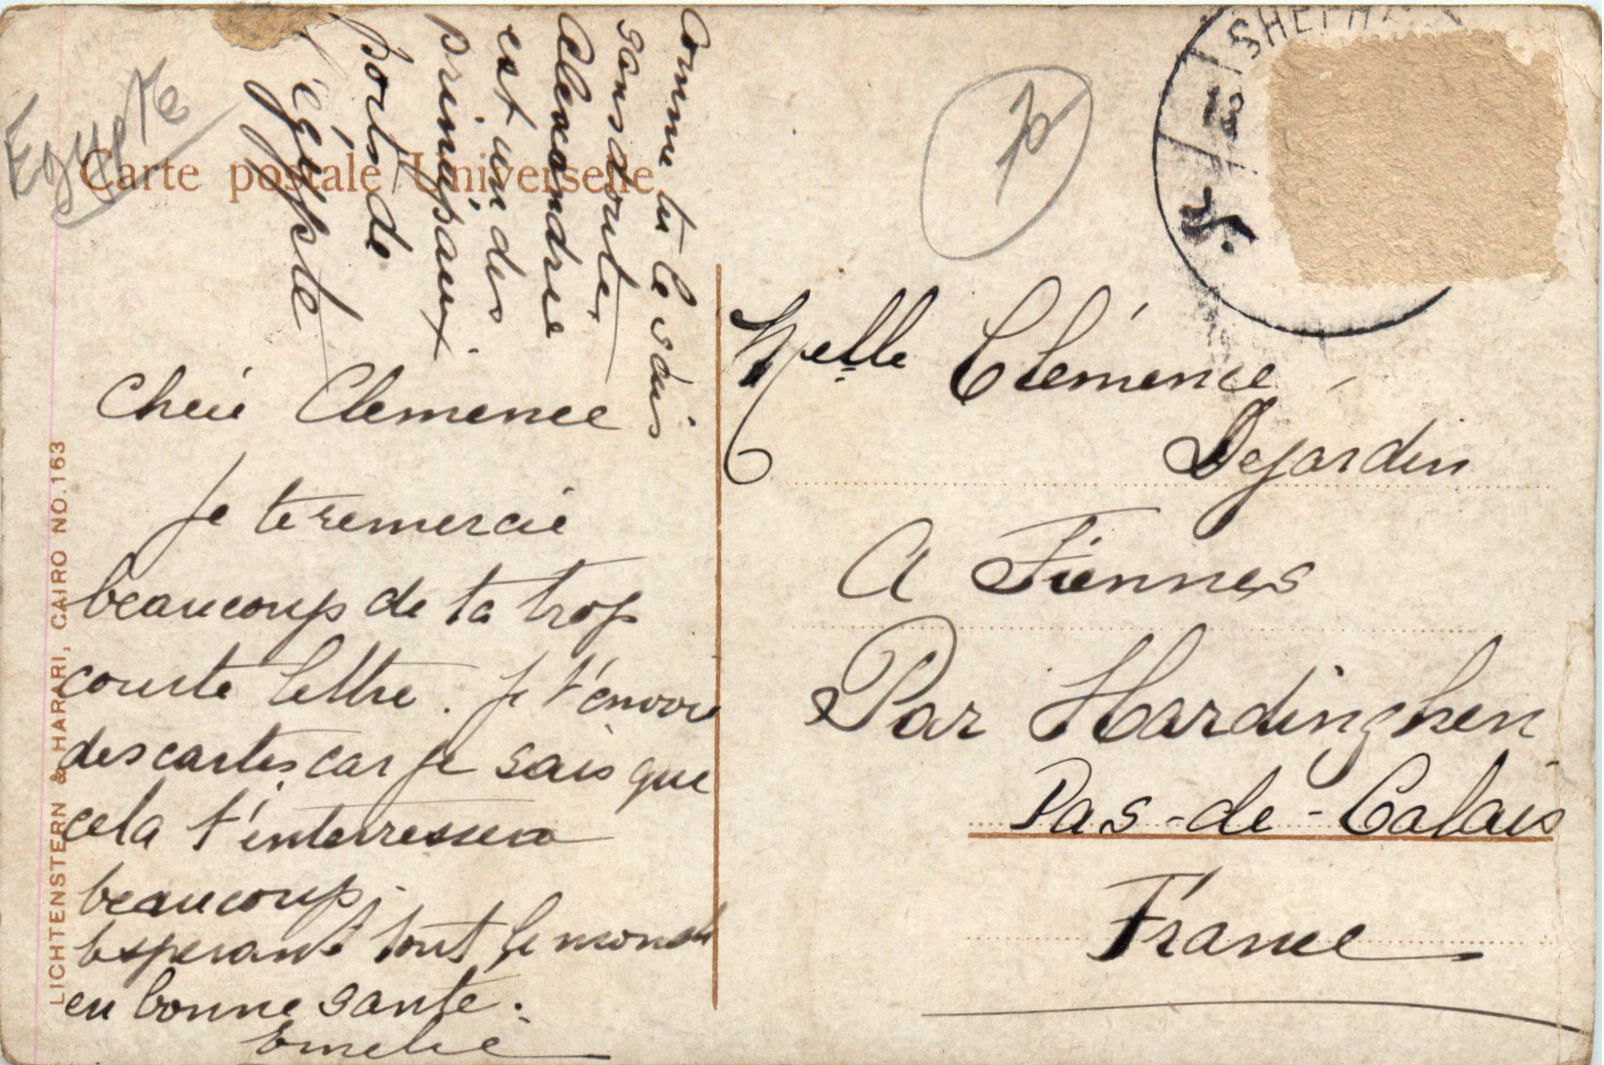 Egypte
Carte postale Universelle
LICHTENSTERN & HARARI, CAIRO NO. 163
Comme tu le sais
sans doute,
Alexandrie
est un des
principaux
ports de
l'égypte
Chèie Clemence
Je te remercie
beaucoup de ta trop
courte lettre. Je t'envoie
des cartes car je sais que
cela t'interressera
beaucoup.
Esperant tout le monde
en bonne sante.
Emelie
SHEPH
70
Melle Clémence
Dejardin
A Fiennes
Par Hardinghen
Pas-de-Calais
France